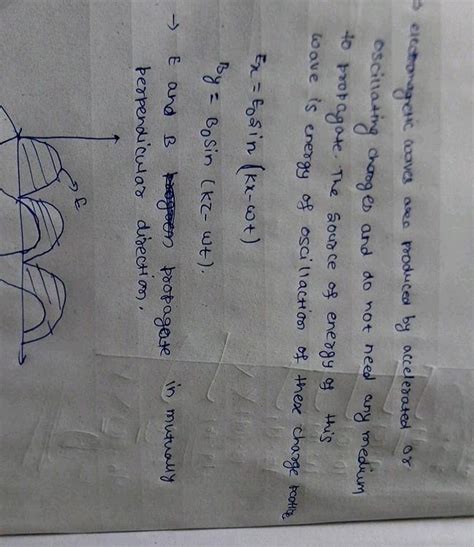 → electromagnetic waves are produced by accelerated or
oscillating charges and do not need any medium
to propagate. The source of energy of this
wave is energy of oscillaction of these charge
Ex = E₀ sin (kx-ωt)
By = B₀ sin (kz- ωt).
→ E and B propagate in mutually
perpendicular direction.
E